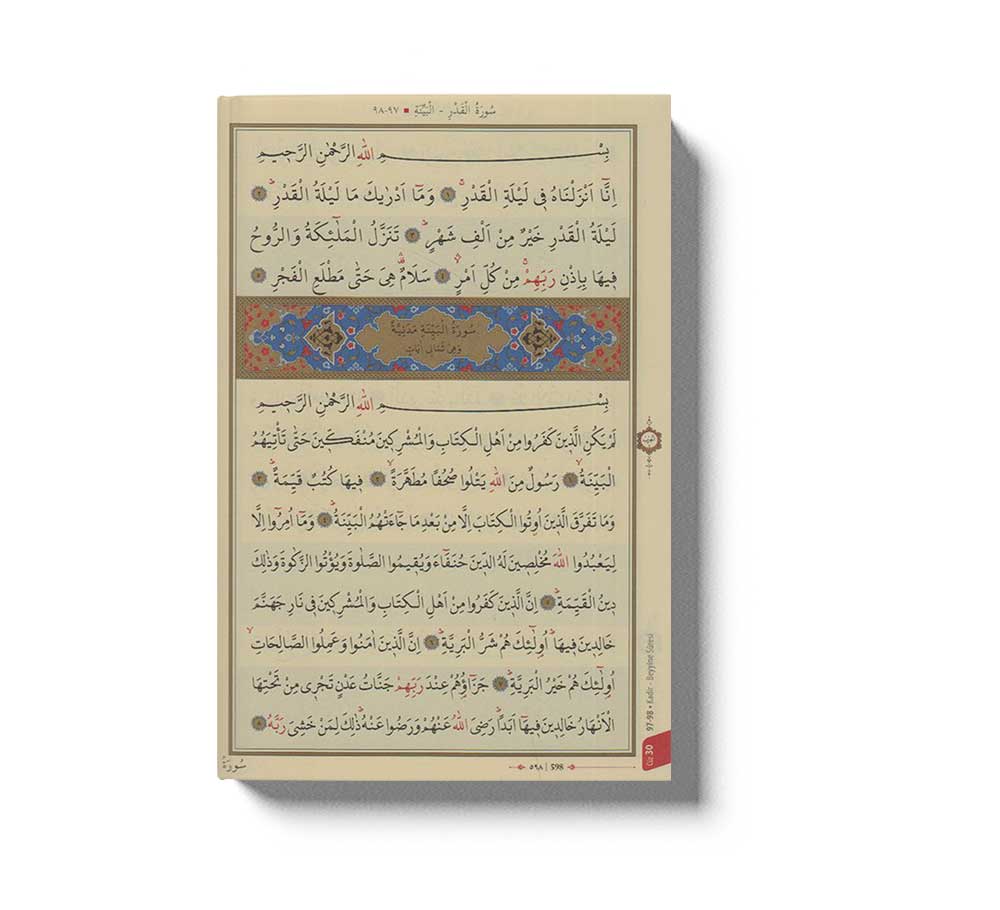 سُورَةُ الْقَدْرِ - الْبَيِّنَةِ ■ ٩٧-٩٨
بِسْمِ اللهِ الرَّحْمٰنِ الرَّح۪يمِ
اِنَّٓا اَنْزَلْنَاهُ ف۪ي لَيْلَةِ الْقَدْرِۚ ﴿١﴾ وَمَٓا اَدْرٰيكَ مَا لَيْلَةُ الْقَدْرِۜ ﴿٢﴾
لَيْلَةُ الْقَدْرِ خَيْرٌ مِنْ اَلْفِ شَهْرٍۜ ﴿٣﴾ تَنَزَّلُ الْمَلٰٓئِكَةُ وَالرُّوحُ
ف۪يهَا بِاِذْنِ رَبِّهِمْۚ مِنْ كُلِّ اَمْرٍۙ ﴿٤﴾ سَلَامٌ۠ هِيَ حَتّٰى مَطْلَعِ الْفَجْرِ ﴿٥﴾
سُورَةُ الْبَيِّنَةِ مَدَنِيَّةٌ
وَهِيَ ثَمَانِي اٰيَاتٍ
بِسْمِ اللهِ الرَّحْمٰنِ الرَّح۪يمِ
لَمْ يَكُنِ الَّذ۪ينَ كَفَرُوا مِنْ اَهْلِ الْكِتَابِ وَالْمُشْرِك۪ينَ مُنْفَكّ۪ينَ حَتّٰى تَأْتِيَهُمُ
الْبَيِّنَةُۙ ﴿١﴾ رَسُولٌ مِنَ اللهِ يَتْلُوا صُحُفًا مُطَهَّرَةًۙ ﴿٢﴾ ف۪يهَا كُتُبٌ قَيِّمَةٌۜ ﴿٣﴾
وَمَا تَفَرَّقَ الَّذ۪ينَ اُو۫تُوا الْكِتَابَ اِلَّا مِنْ بَعْدِ مَا جَٓاءَتْهُمُ الْبَيِّنَةُۜ ﴿٤﴾ وَمَٓا اُمِرُٓوا اِلَّا
لِيَعْبُدُوا اللهَ مُخْلِص۪ينَ لَهُ الدّ۪ينَ حُنَفَٓاءَ وَيُق۪يمُوا الصَّلٰوةَ وَيُؤْتُوا الزَّكٰوةَ وَذٰلِكَ
د۪ينُ الْقَيِّمَةِۜ ﴿٥﴾ اِنَّ الَّذ۪ينَ كَفَرُوا مِنْ اَهْلِ الْكِتَابِ وَالْمُشْرِك۪ينَ ف۪ي نَارِ جَهَنَّمَ
خَالِد۪ينَ ف۪يهَاۜ اُو۬لٰٓئِكَ هُمْ شَرُّ الْبَرِيَّةِۜ ﴿٦﴾ اِنَّ الَّذ۪ينَ اٰمَنُوا وَعَمِلُوا الصَّالِحَاتِۙ
اُو۬لٰٓئِكَ هُمْ خَيْرُ الْبَرِيَّةِۜ ﴿٧﴾ جَزَٓاؤُ۬هُمْ عِنْدَ رَبِّهِمْ جَنَّاتُ عَدْنٍ تَجْر۪ي مِنْ تَحْتِهَا
الْاَنْهَارُ خَالِد۪ينَ ف۪يهَٓا اَبَدًاۜ رَضِيَ اللهُ عَنْهُمْ وَرَضُوا عَنْهُۜ ذٰلِكَ لِمَنْ خَشِيَ رَبَّهُ ﴿٨﴾
97-98 • Kadir - Beyyine Sûresi
Cüz 30
598 | ٥٩٨
سُورَةُ